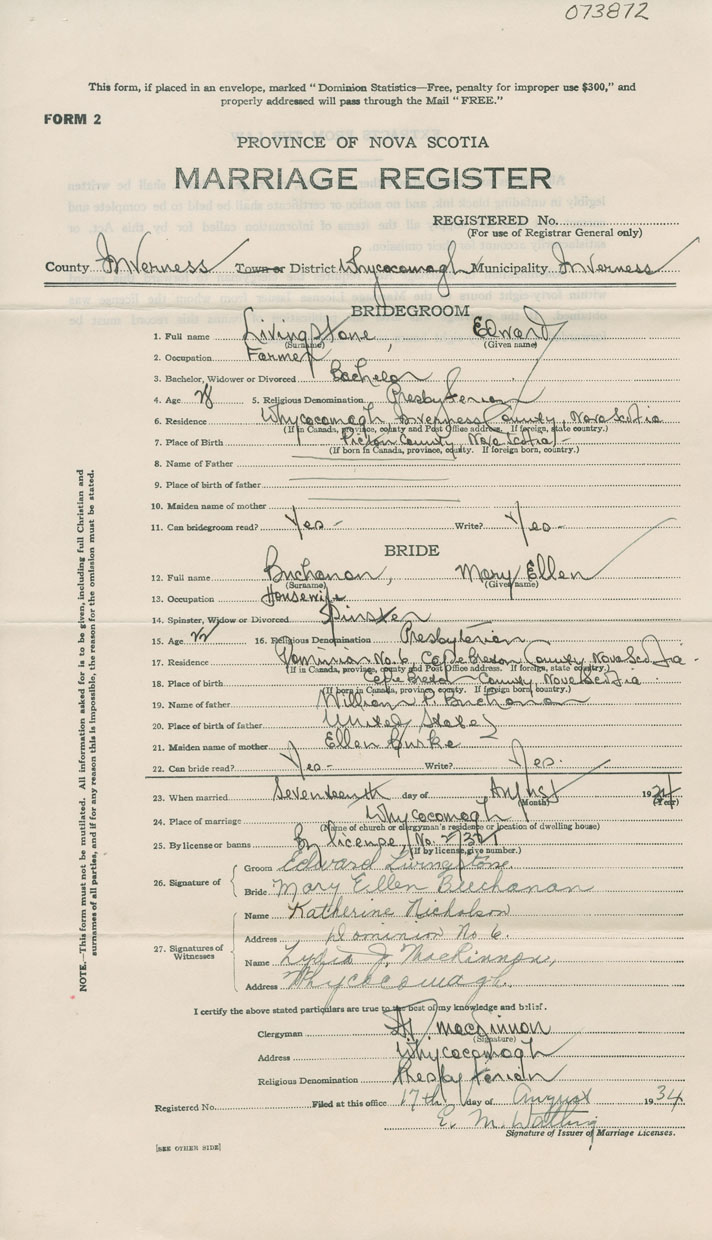 073872
This form, if placed in an envelope, marked "Dominion Statistics—Free, penalty for improper use $300," and
properly addressed will pass through the Mail "FREE."
FORM 2
PROVINCE OF NOVA SCOTIA
MARRIAGE REGISTER
REGISTERED No.
(For use of Registrar General only)
County Inverness Town or District Whycocomagh Municipality Inverness
BRIDEGROOM
1. Full name Livingstone, Edward
(Surname) (Given name)
2. Occupation Farmer
3. Bachelor, Widower or Divorced Bachelor
4. Age 5. Religious Denomination Presbyterian
6. Residence Whycocomagh, Inverness County, Nova Scotia
(If in Canada, province, county and Post Office address. If foreign, state country.)
7. Place of Birth Pictou County, Nova Scotia -
(If born in Canada, province, county. If foreign born, country.)
8. Name of Father
9. Place of birth of father
10. Maiden name of mother
11. Can bridegroom read? Yes - Write? Yes -
BRIDE
12. Full name Buchanan, Mary Ellen
(Surname) (Given name)
13. Occupation Housewife
14. Spinster, Widow or Divorced Spinster
15. Age 16. Religious Denomination Presbyterian
17. Residence Dominion No. 6, Cape Breton County, Nova Scotia -
(If in Canada, province, county and Post Office address. If foreign, state country.)
18. Place of birth Cape Breton County, Nova Scotia
(If born in Canada, province, county. If foreign born, country.)
19. Name of father William P. Buchanan
20. Place of birth of father United States
21. Maiden name of mother Ellen Burke
22. Can bride read? Yes - Write? Yes.
23. When married Seventeenth day of August 1934
(Month) (Year)
24. Place of marriage Whycocomagh
(Name of church or clergyman's residence or location of dwelling house)
25. By license or banns By license, No.
(If by license, give number.)
26. Signature of
Groom Edward Livingstone.
Bride Mary Ellen Buchanan
27. Signatures of Witnesses
Name Katherine Nicholson
Address Dominion No 6.
Name Lydia J. MacKinnon,
Address Whycocomagh.
I certify the above stated particulars are true to the best of my knowledge and belief.
Clergyman MacKinnon
(Signature)
Address Whycocomagh
Religious Denomination Presbyterian
Registered No. Filed at this office 17th day of August 1934
E. M.
Signature of Issuer of Marriage Licenses.
[SEE OTHER SIDE]
NOTE.—This form must not be mutilated. All information asked for is to be given, including full Christian and
surnames of all parties, and if for any reason this is impossible, the reason for the omission must be stated.